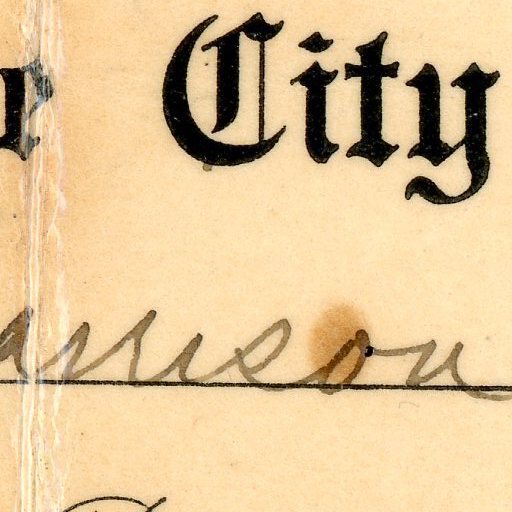 e City
amson